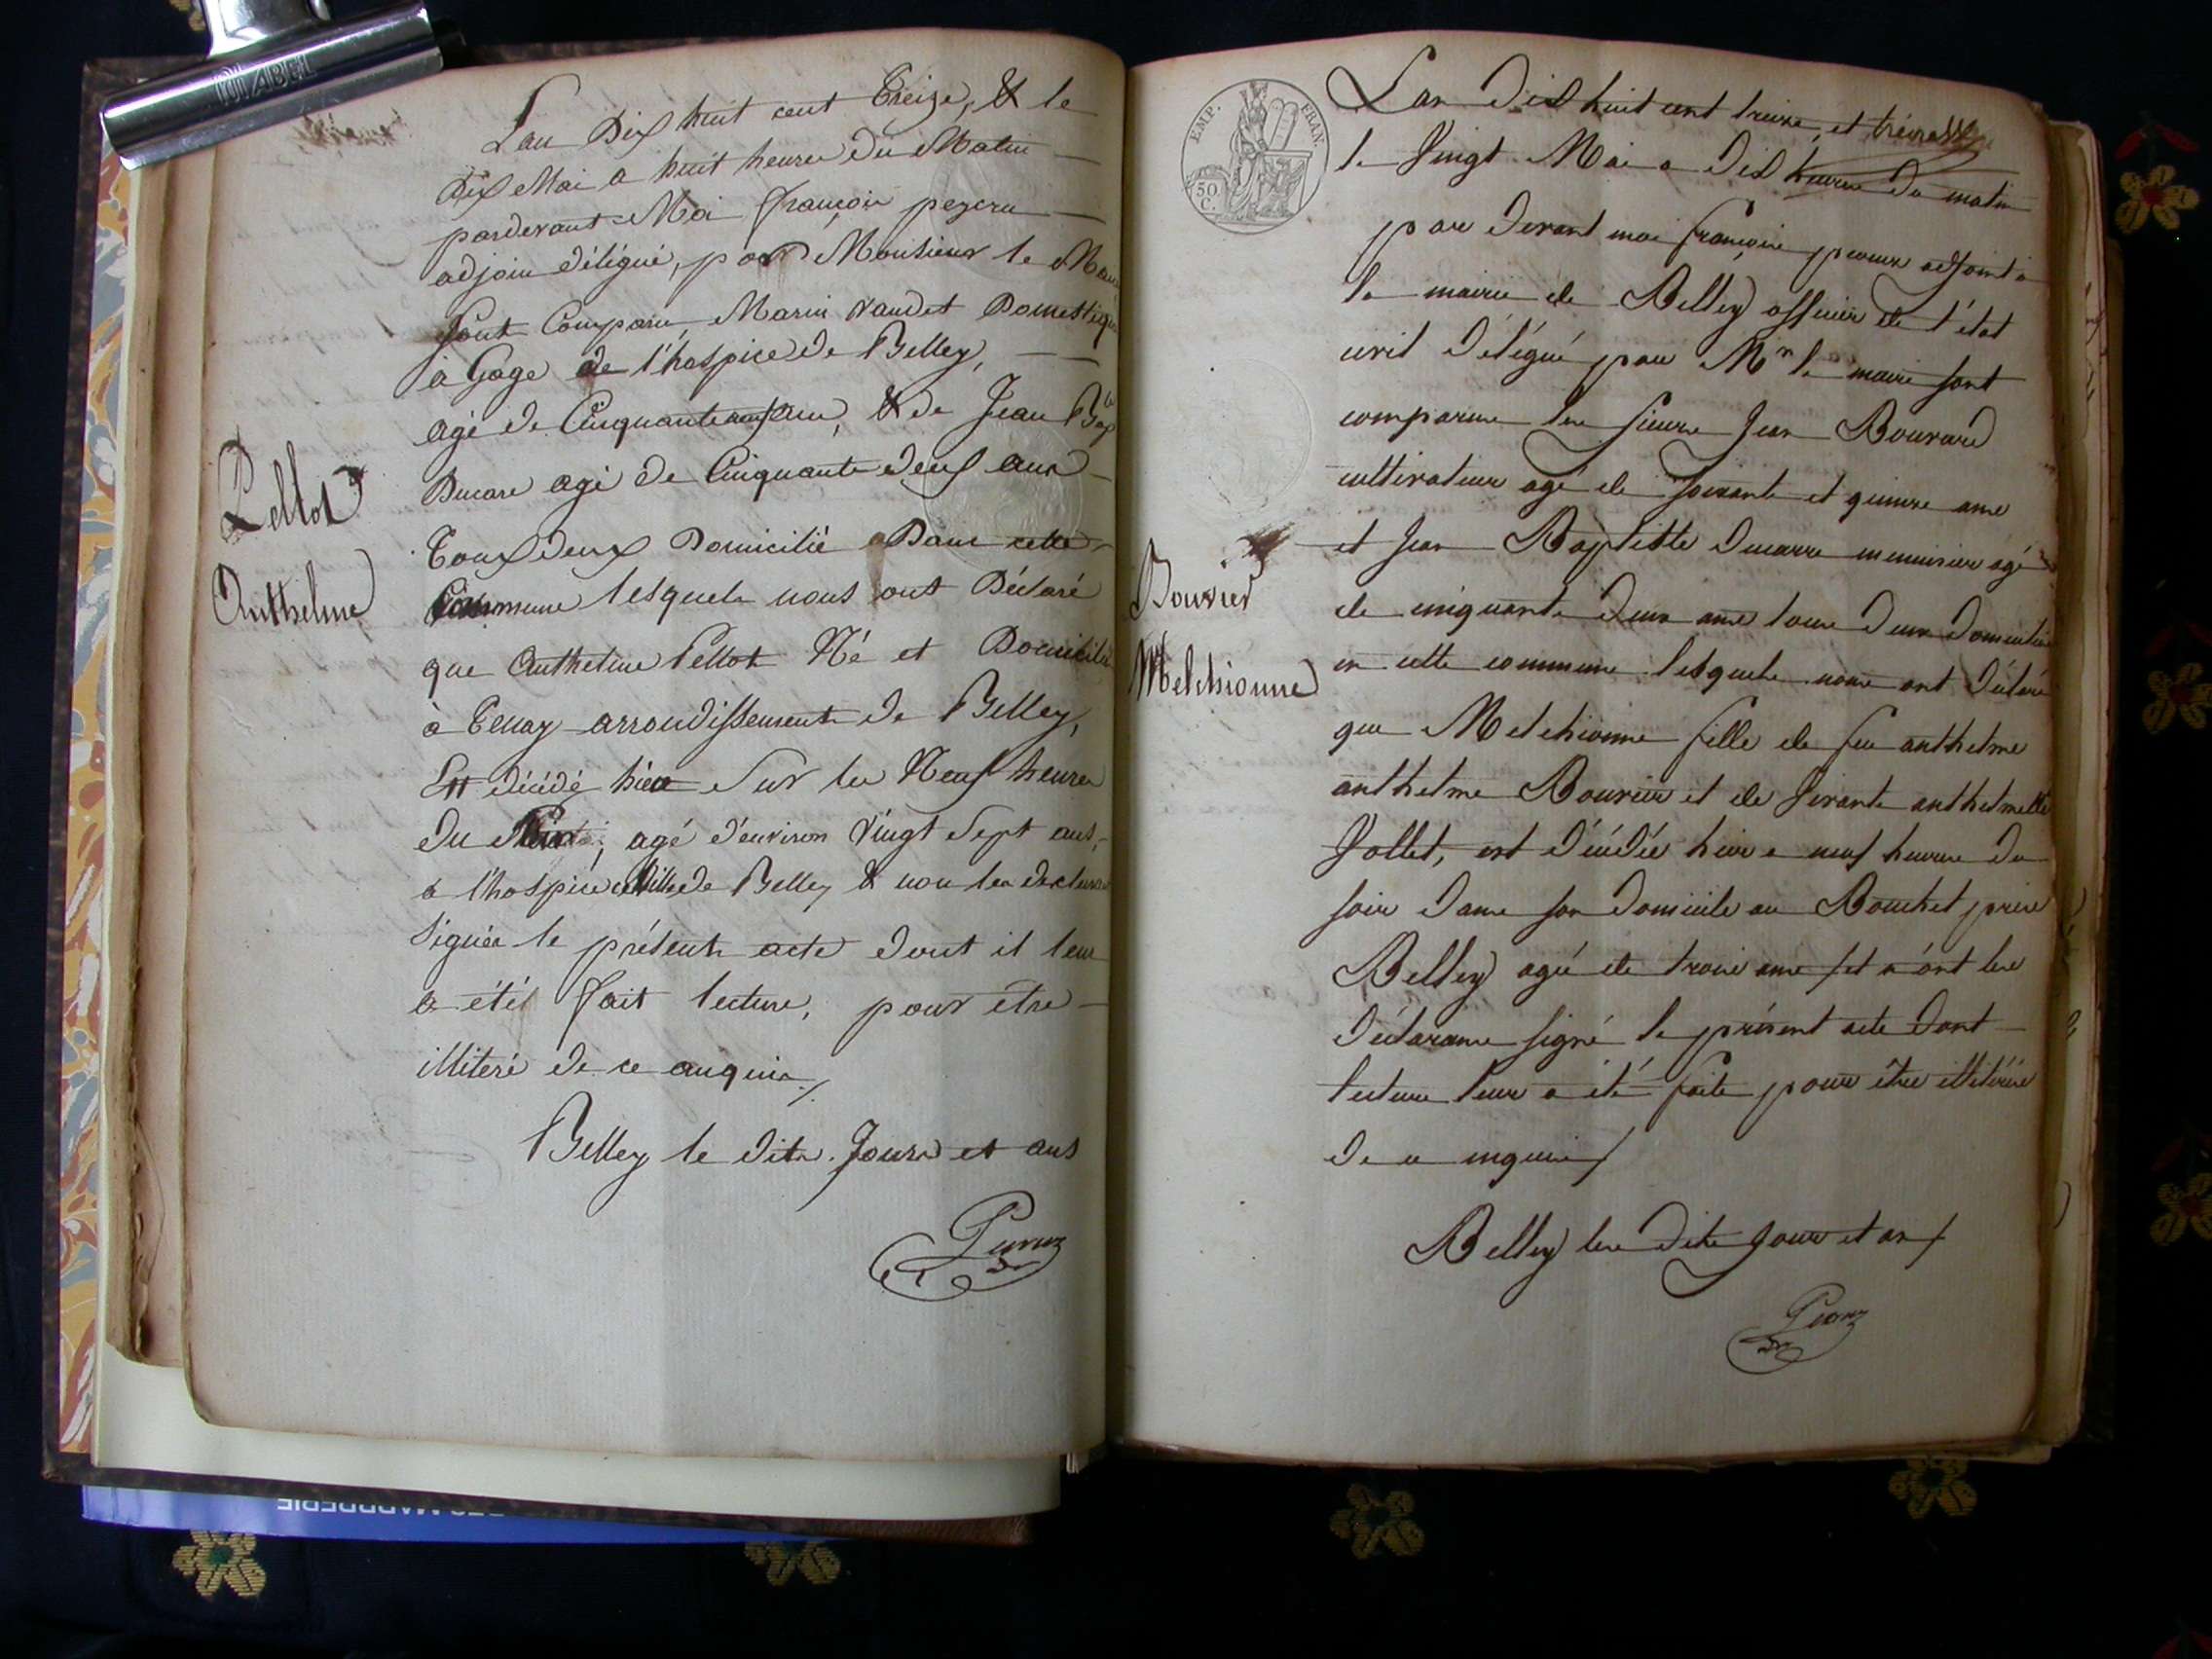 DIABEL
L'an Dix huit cent Treize, & le
Dix Mai a huit heures du Matin
pardevant Moi françois
adjoin délégué, par Monsieur le Maire
Sont Comparu, Marin Vaudet Domestique
à Gage de l'hospice de Belley,
agé de Cinquante ans, & de Jean Bapte
Ducare agé de Cinquante deux ans
Tous deux Domicilié Dans cette
Commune lesquels nous ont Déclaré
que Anthelme Pellot Né et Domicilié
à Tenay arrondissement de Belley,
Est décédé hier Sur les Neuf heures
du agé d'environ Vingt Sept ans,
à l'hospice de Belley & non les declarans
Signés le présent acte dont il leur
a été fait lecture, pour être
illiteré de ce anquis
Belley le dits Jours et ans
Pellot
Anthelme
EMP. FRAN.
50 C.
L'an Dix huit cent treize, et
le Vingt Mai a Dix heures du matin
par devant moi françois adjoint à
la mairie de Belley officier de l'état
civil délégué par Mr le maire sont
comparus les sieurs Jean Bouvard
cultivateur agé de soixante et quinze ans
et Jean Baptiste Ducarre menuisier agé
de cinquante deux ans tous deux domiciliés
en cette commune lesquels nous ont déclaré
que Melchionne fille de feu anthelme
anthelme Bouvier et de vivante anthelmette
Jollet, est décédée hier a neuf heures du
soir dans son domicile au Bouchet près
Belley agée de trois ans et n'ont les
déclarans signé le présent acte dont
lecture leur a été faite pour être illitérés
de ce enquis
Belley les dits jour et an
Bouvier
Melchionne